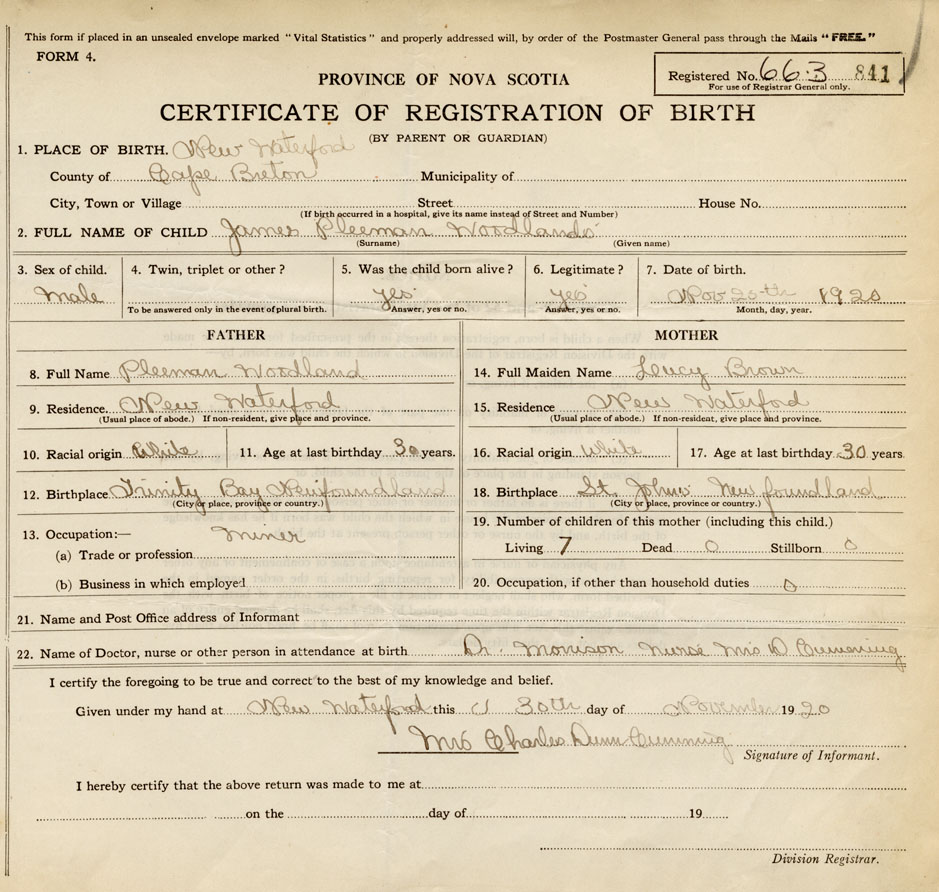 This form if placed in an unsealed envelope marked "Vital Statistics" and properly addressed will, by order of the Postmaster General pass through the Mails "FREE."
FORM 4.
Registered No. 663 841
For use of Registrar General only.
PROVINCE OF NOVA SCOTIA
CERTIFICATE OF REGISTRATION OF BIRTH
(BY PARENT OR GUARDIAN)
1. PLACE OF BIRTH. New Waterford
County of Cape Breton Municipality of
City, Town or Village Street House No.
(If birth occurred in a hospital, give its name instead of Street and Number)
2. FULL NAME OF CHILD James Pleeman Woodlands
(Surname) (Given name)
3. Sex of child. 4. Twin, triplet or other? 5. Was the child born alive? 6. Legitimate? 7. Date of birth.
Male yes yes Nov 25th 1920
To be answered only in the event of plural birth. Answer, yes or no. Answer, yes or no. Month, day, year.
FATHER MOTHER
8. Full Name Pleeman Woodland 14. Full Maiden Name Leucy Brown
9. Residence. New Waterford 15. Residence New Waterford
(Usual place of abode.) If non-resident, give place and province. (Usual place of abode.) If non-resident, give place and province.
10. Racial origin White 11. Age at last birthday 30 years. 16. Racial origin White 17. Age at last birthday 30 years
12. Birthplace Trinity Bay Newfoundland 18. Birthplace St. Johns Newfoundland
(City or place, province or country.) (City or place, province or country.)
13. Occupation:— Miner 19. Number of children of this mother (including this child.)
(a) Trade or profession Living 7 Dead 0 Stillborn 0
(b) Business in which employed 20. Occupation, if other than household duties 0
21. Name and Post Office address of Informant
22. Name of Doctor, nurse or other person in attendance at birth Dr. Morrison Nurse Mrs D Cumming
I certify the foregoing to be true and correct to the best of my knowledge and belief.
Given under my hand at New Waterford this 30th day of November 1920
Mrs Charles Dunn Cumming
Signature of Informant.
I hereby certify that the above return was made to me at
on the day of 19
Division Registrar.